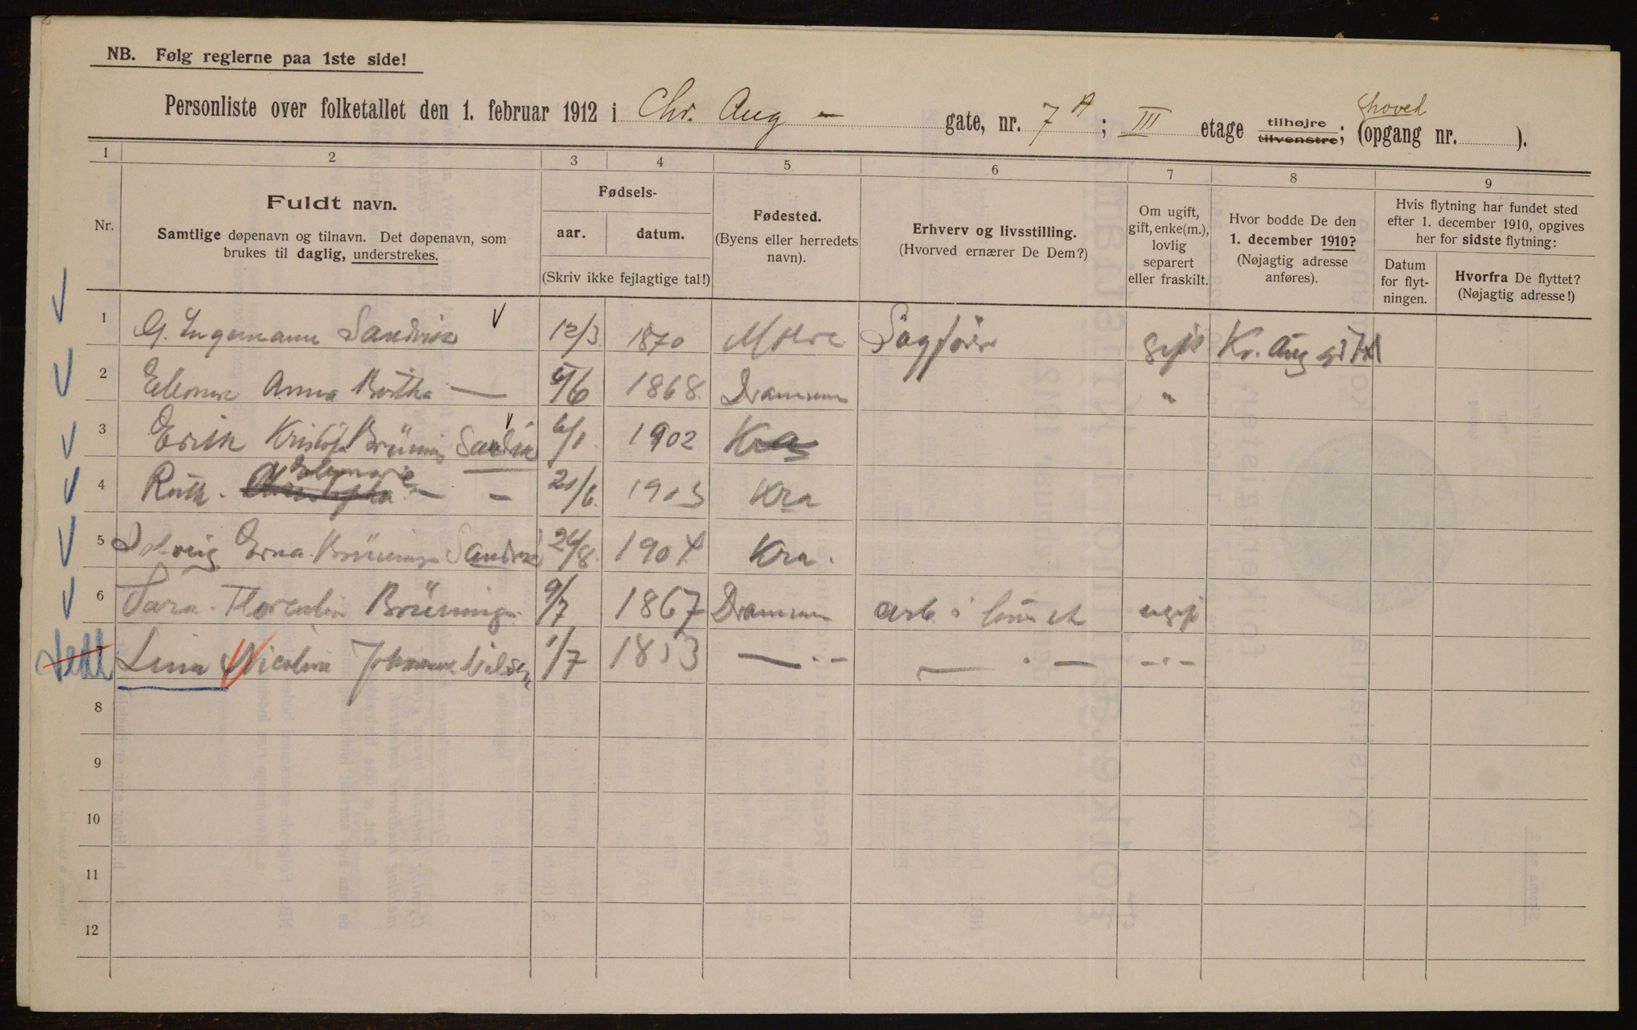 NB. Følg reglerne paa 1ste side!
Personliste over folketallet den 1. februar 1912 i Chr. Aug — gate, nr. 7 A; III etage tilhøjre tilvenstre; (opgang nr. hoved ).
1 2 3 4 5 6 7 8 9
Nr.
Fuldt navn.
Samtlige døpenavn og tilnavn. Det døpenavn, som
brukes til daglig, understrekes.
Fødsels-
aar. datum.
(Skriv ikke fejlagtige tal!)
Fødested.
(Byens eller herredets
navn).
Erhverv og livsstilling.
(Hvorved ernærer De Dem?)
Om ugift,
gift, enke(m.),
lovlig
separert
eller fraskilt.
Hvor bodde De den
1. december 1910?
(Nøjagtig adresse
anføres).
Hvis flytning har fundet sted
efter 1. december 1910, opgives
her for sidste flytning:
Datum
for flyt-
ningen.
Hvorfra De flyttet?
(Nøjagtig adresse!)
1 G. Ingemann Sandvik 12/3 1870 Sagfører gift Kr. Aug g 7A
2 Anna — 5/6 1868 Drammen "
3 Erik Sandvik 6/1 1902 Kra
4 Ruth — — 21/6 1903 Kra
5 Solveig Erna Brüning Sandvik 24/8 1904 Kra.
6 Sara Florentin Brüning 9/7 1867 Drammen arb i huset ugift
Lina Nicolina Johanne Nilsen 1/7 1853 — . — — . — — . —
8
9
10
11
12